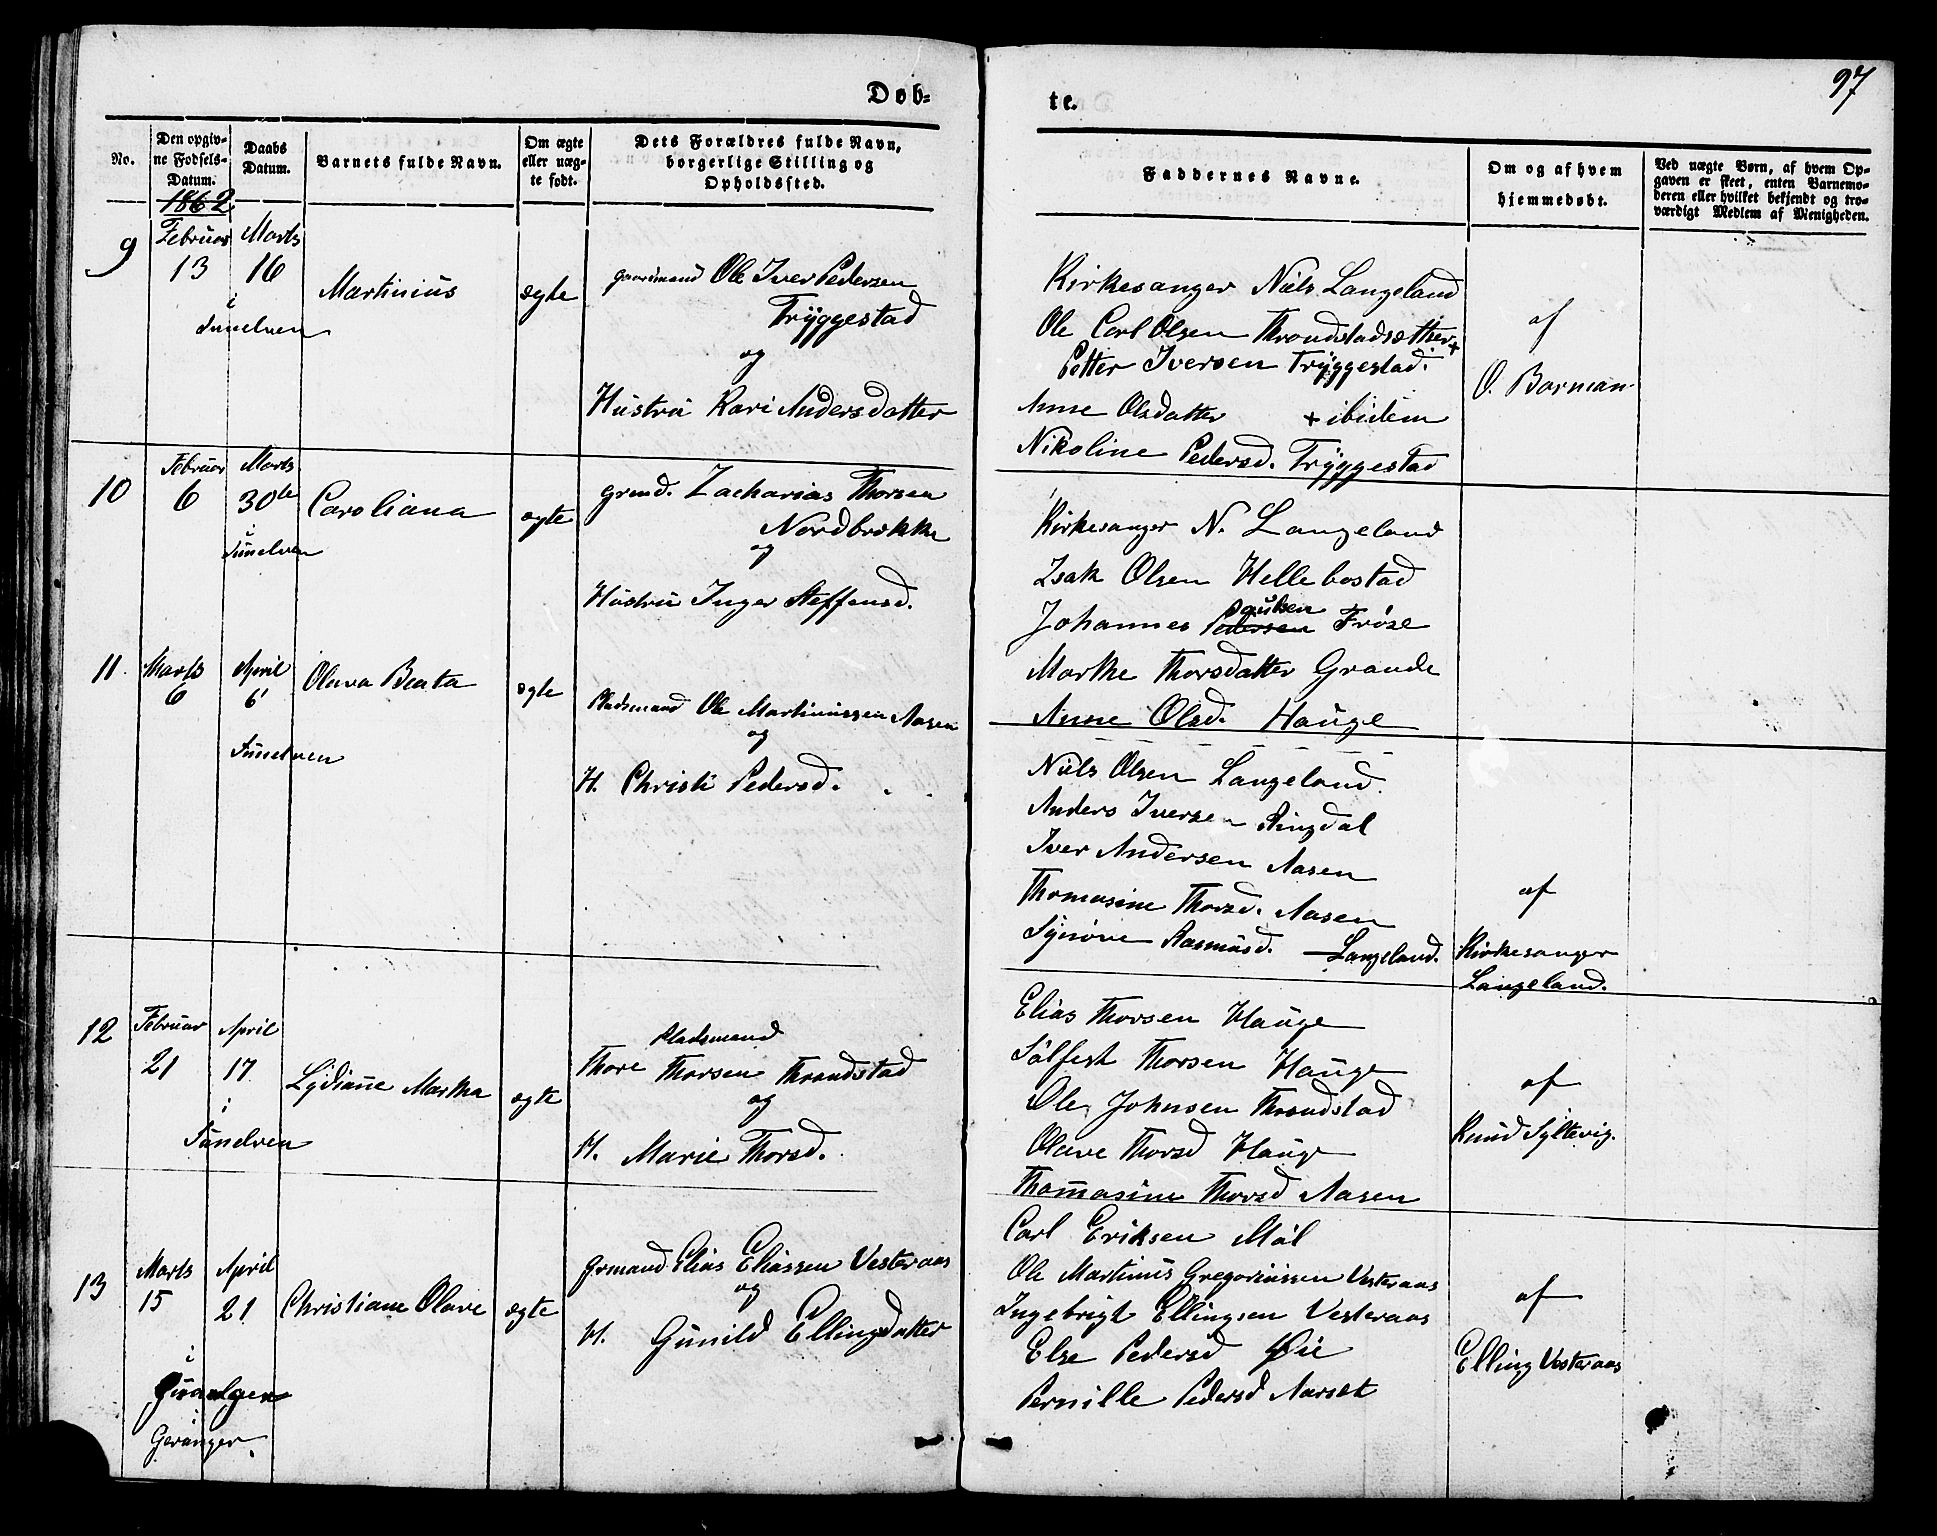 Døb=
te.
97
No.
Den opgiv-
ne Fødsels-
Datum.
Daabs
Datum.
Barnets fulde Navn.
Om ægte
eller uæg-
te født.
Dets Forældres fulde Navn,
borgerlige Stilling og
Opholdssted.
Faddernes Navne.
Om og af hvem
hjemmedøbt.
Ved uægte Børn, af hvem Op-
gaven er skeet, enten Barnemo-
deren eller hvilket bekjendt og tro-
værdigt Medlem af Menigheden.
1862
9
Februar
13
Marts
16
i
Sunelven
Martinius
ægte
gaardmand Ole Iver Pedersen
Tryggestad
og
Hustru Kari Andersdatter
Kirkesanger Niels Langeland
Ole Carl Olsen Throndstadsætter +
Petter Iversen Tryggestad.
Anne Olsdatter + ibidem
Nikoline Pedersd. Tryggestad
af
O. Barman
10
Februar
6
Marts
30te
i
Sunelven
Caroliana
ægte
grmd. Zacharias Thorsen
Nordbrekke
og
Hustru Inger Steffensd.
Kirkesanger N. Langeland
Isak Olsen Hellebostad
Johannes Pedersen Frøse
Marthe Thorsdatter Grande
Anne Olsd. Hauge
11
Marts
6
April
6
Sunelven
Olava Beata
ægte
Pladsmand Ole Martinussen Aasen
og
H. Christi Pedersd.
Niels Olsen Langeland.
Anders Iversen Ringdal
Iver Andersen Aasen
Thomasine Thorsd. Aasen
Synøve Rasmusd. Langeland.
af
Kirkesanger
Langeland.
12
Februar
21
April
17
i
Sunelven
Lydianne Martha
ægte
Pladsmand
Thore Thorsen Throndstad
og
H. Marie Thorsd.
Elias Thorsen Hauge
Sølfest Thorsen Hauge
Ole Johnsen Throndstad
Olave Thorsd Hauge
Thommasine Thorsd Aasen
af
Knud Syltevig.
13
Marts
15
April
21
i
i
Geranger.
Christiane Olave
ægte
grmand Elias Eliassen Vesteraas
og
H. Gunild Ellingsdatter
Carl Eriksen Møl
Ole Martinus Gregoriussen Vesteraas
Ingebrigt Ellingsen Vesteraas
Else Pedersd Øie
Pernille Pedersd Aarset
af
Elling Vesteraas